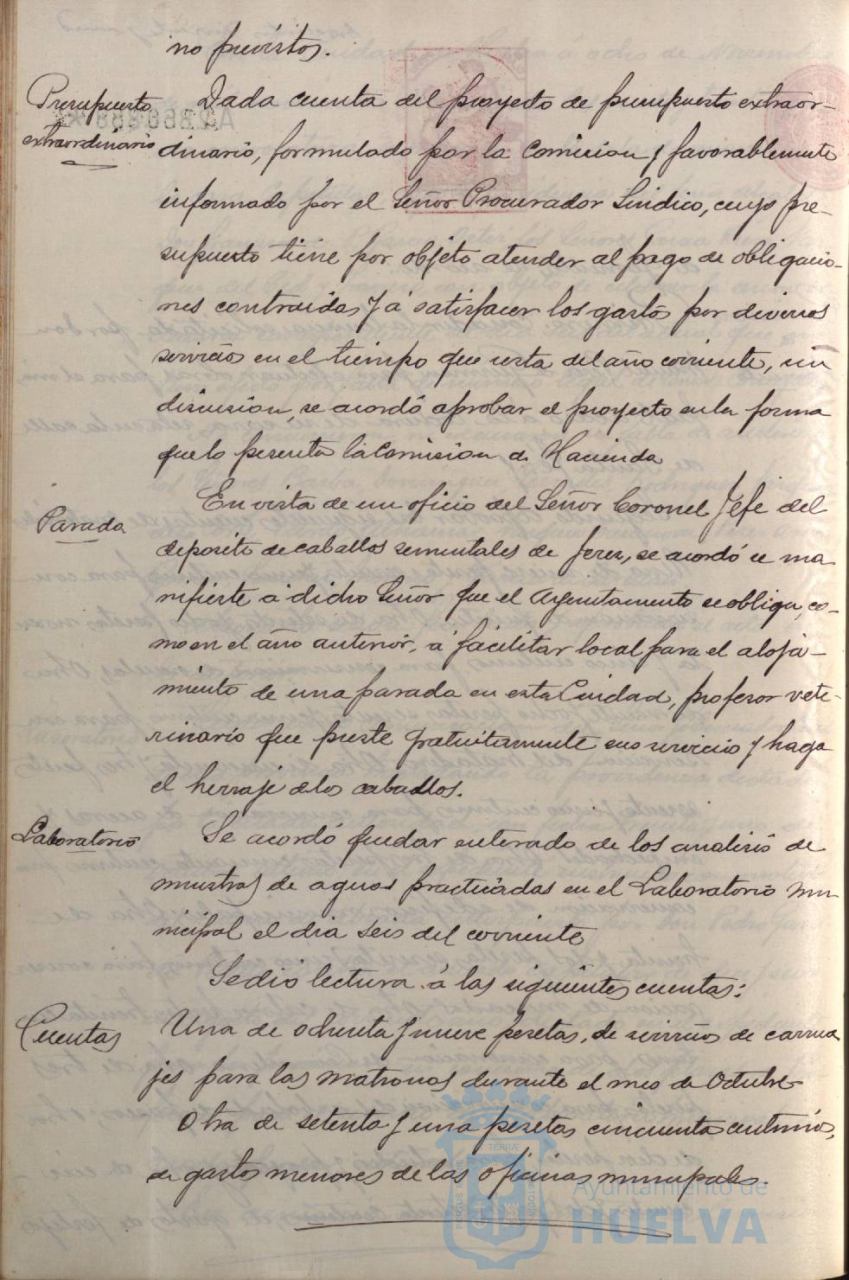 no previstos.
Presupuesto
extraordinario
Dada cuenta del proyecto de presupuesto extraor-
dinario, formulado por la Comision y favorablemente
informado por el Señor Procurador Sindico, cuyo pre-
supuesto tiene por objeto atender al pago de obligacio-
nes contraidas y á satisfacer los gastos por diversos
servicios en el tiempo que resta del año corriente, sin
discusion, se acordó aprobar el proyecto en la forma
que lo presenta la Comision de Hacienda
Parada
En vista de un oficio del Señor Coronel Jefe del
deposito de caballos sementales de Jerez, se acordó se ma
nifieste á dicho Señor que el Ayuntamiento se obliga, co-
mo en el año anterior, á facilitar local para el aloja-
miento de una parada en esta Ciudad, profesor vete-
rinario que preste gratuitamente sus servicio y haga
el herraje de los caballos.
Laboratorio
Se acordó quedar enterado de los analisis de
muestras de aguas practicadas en el Laboratorio mu
nicipal el dia seis del corriente
Se dió lectura á las siguientes cuentas:
Cuentas
Una de ochenta y nueve pesetas, de servicios de carrua
jes para las matronas durante el mes de Octubre
Otra de setenta y una pesetas cincuenta centimos,
de gastos menores de las oficinas municipales.
Ayuntamiento de
HUELVA